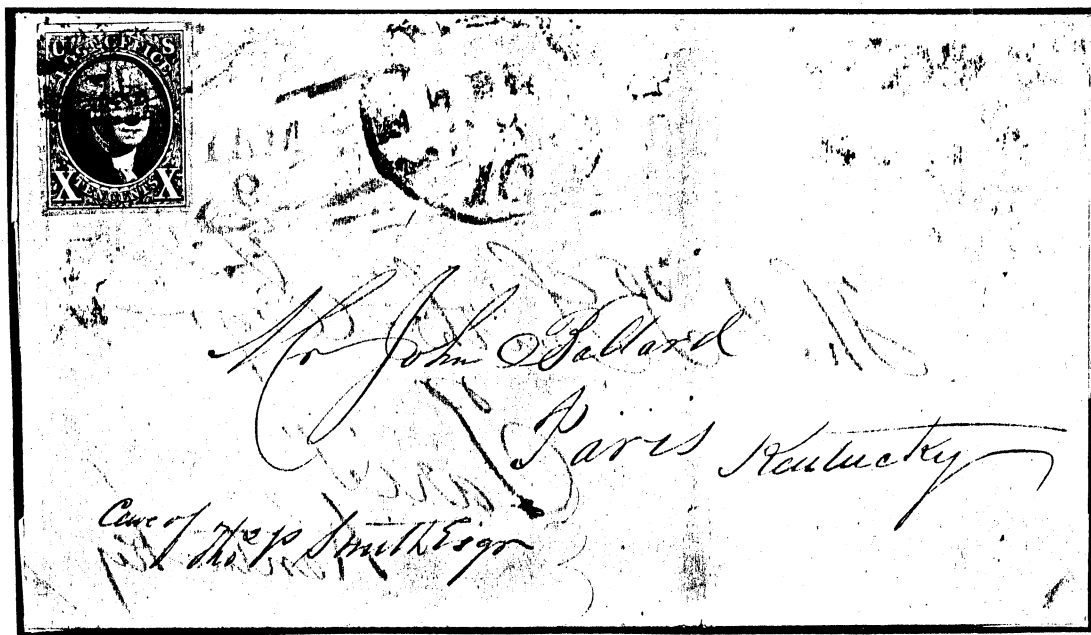 POST OFFICE
X TEN CENTS X
PAID
10
Mr John Ballard
Paris Kentucky
Care of
Thos P Smith Esqr